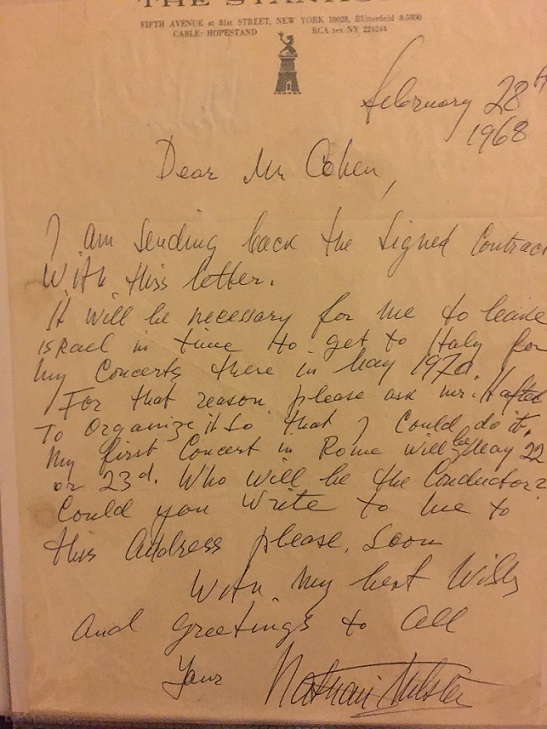 THE STANHOPE
FIFTH AVENUE at 81st STREET, NEW YORK 10028, BUtterfield 8-5800
CABLE: HOPESTAND RCA tex NY 224244
February 28th
1968
Dear Mr Cohen,
I am sending back the signed Contrac
With this letter.
It will be necessary for me to leave
ISRael in time to get to Italy for
my Concerts there in May 1970.
For that reason please ask mr.
To Organize it so that I could do it.
My first Concert in Rome will be May 22
or 23d. Who will be the Conductor?
Could you Write to me to
this Address please, soon
With my best Wishs
And greetings to all
Your Nathan Milstein